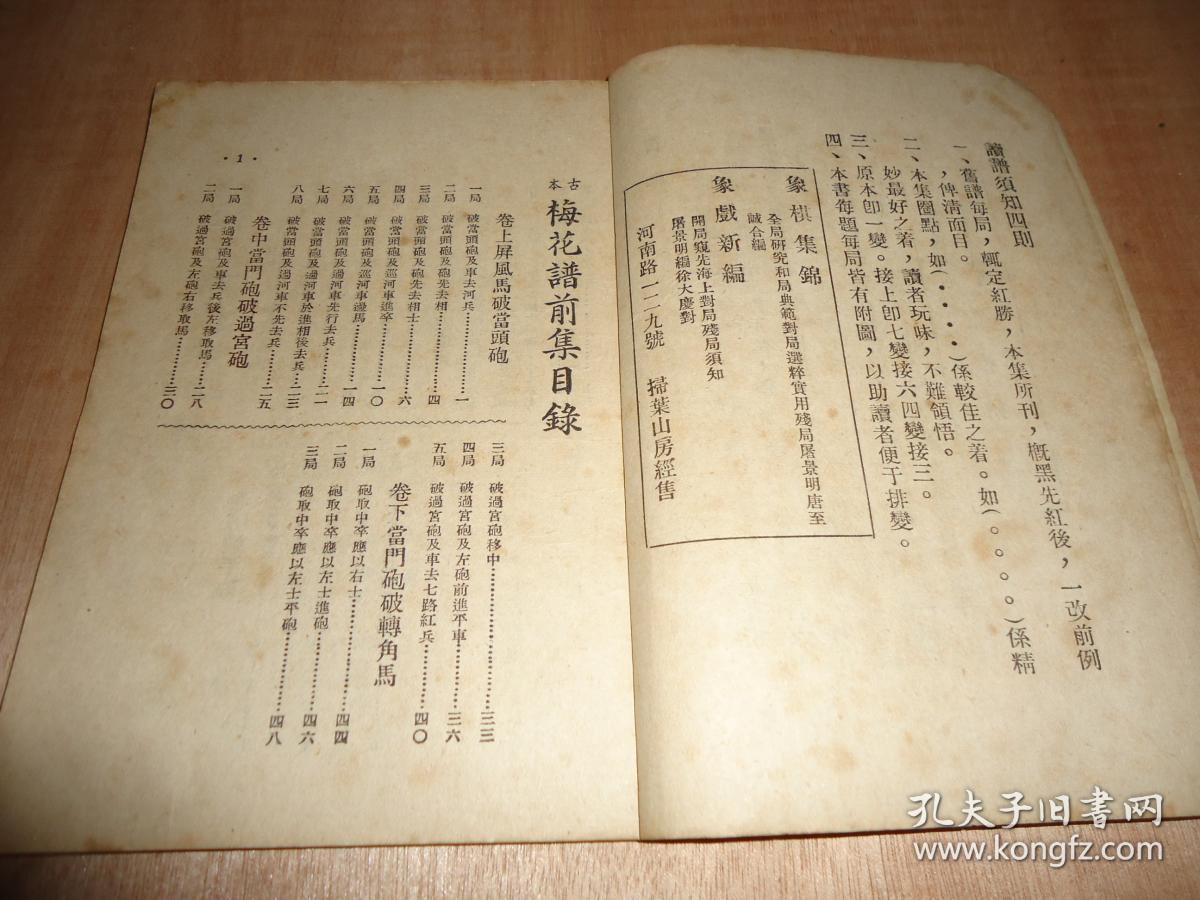 讀譜須知四則
一、舊譜每局，輒定紅勝，本集所刊，概黑先紅後，一改前例
，俾清面目。
二、本集圈點，如(．．．．)係較佳之着。如(。。。。)係精
妙最好之着，讀者玩味，不難領悟。
三、原本卽一變。接上卽七變接六四變接三。
四、本書每題每局皆有附圖，以助讀者便于排變。
象棋集錦
全局研究和局典範對局選粹實用殘局屠景明唐至
誠合編
象戲新編
開局窺先海上對局殘局須知
屠景明編徐大慶對
河南路一二九號 掃葉山房經售
古本梅花譜前集目錄
卷上屏風馬破當頭砲
一局 破當頭砲及車去河兵………一
二局 破當頭砲及砲先去相………四
三局 破當頭砲及砲先去相士………六
四局 破當頭砲及巡河車進卒………一〇
五局 破當頭砲及巡河車邊馬………一四
六局 破當頭砲及過河車先行去兵………二一
七局 破當頭砲及過河車於進相後去兵………二三
八局 破當頭砲及過河車不先去兵………二五
卷中當門砲破過宮砲
一局 破過宮砲及車去兵後左移取馬………二八
二局 破過宮砲及左砲右移取馬………三〇
三局 破過宮砲移中………三三
四局 破過宮砲及左砲前進平車………三六
五局 破過宮砲及車去七路紅兵………四〇
卷下當門砲破轉角馬
一局 砲取中卒應以右士………四四
二局 砲取中卒應以左士進砲………四六
三局 砲取中卒應以左士平砲………四八
·1·
孔夫子旧书网
www.kongfz.com